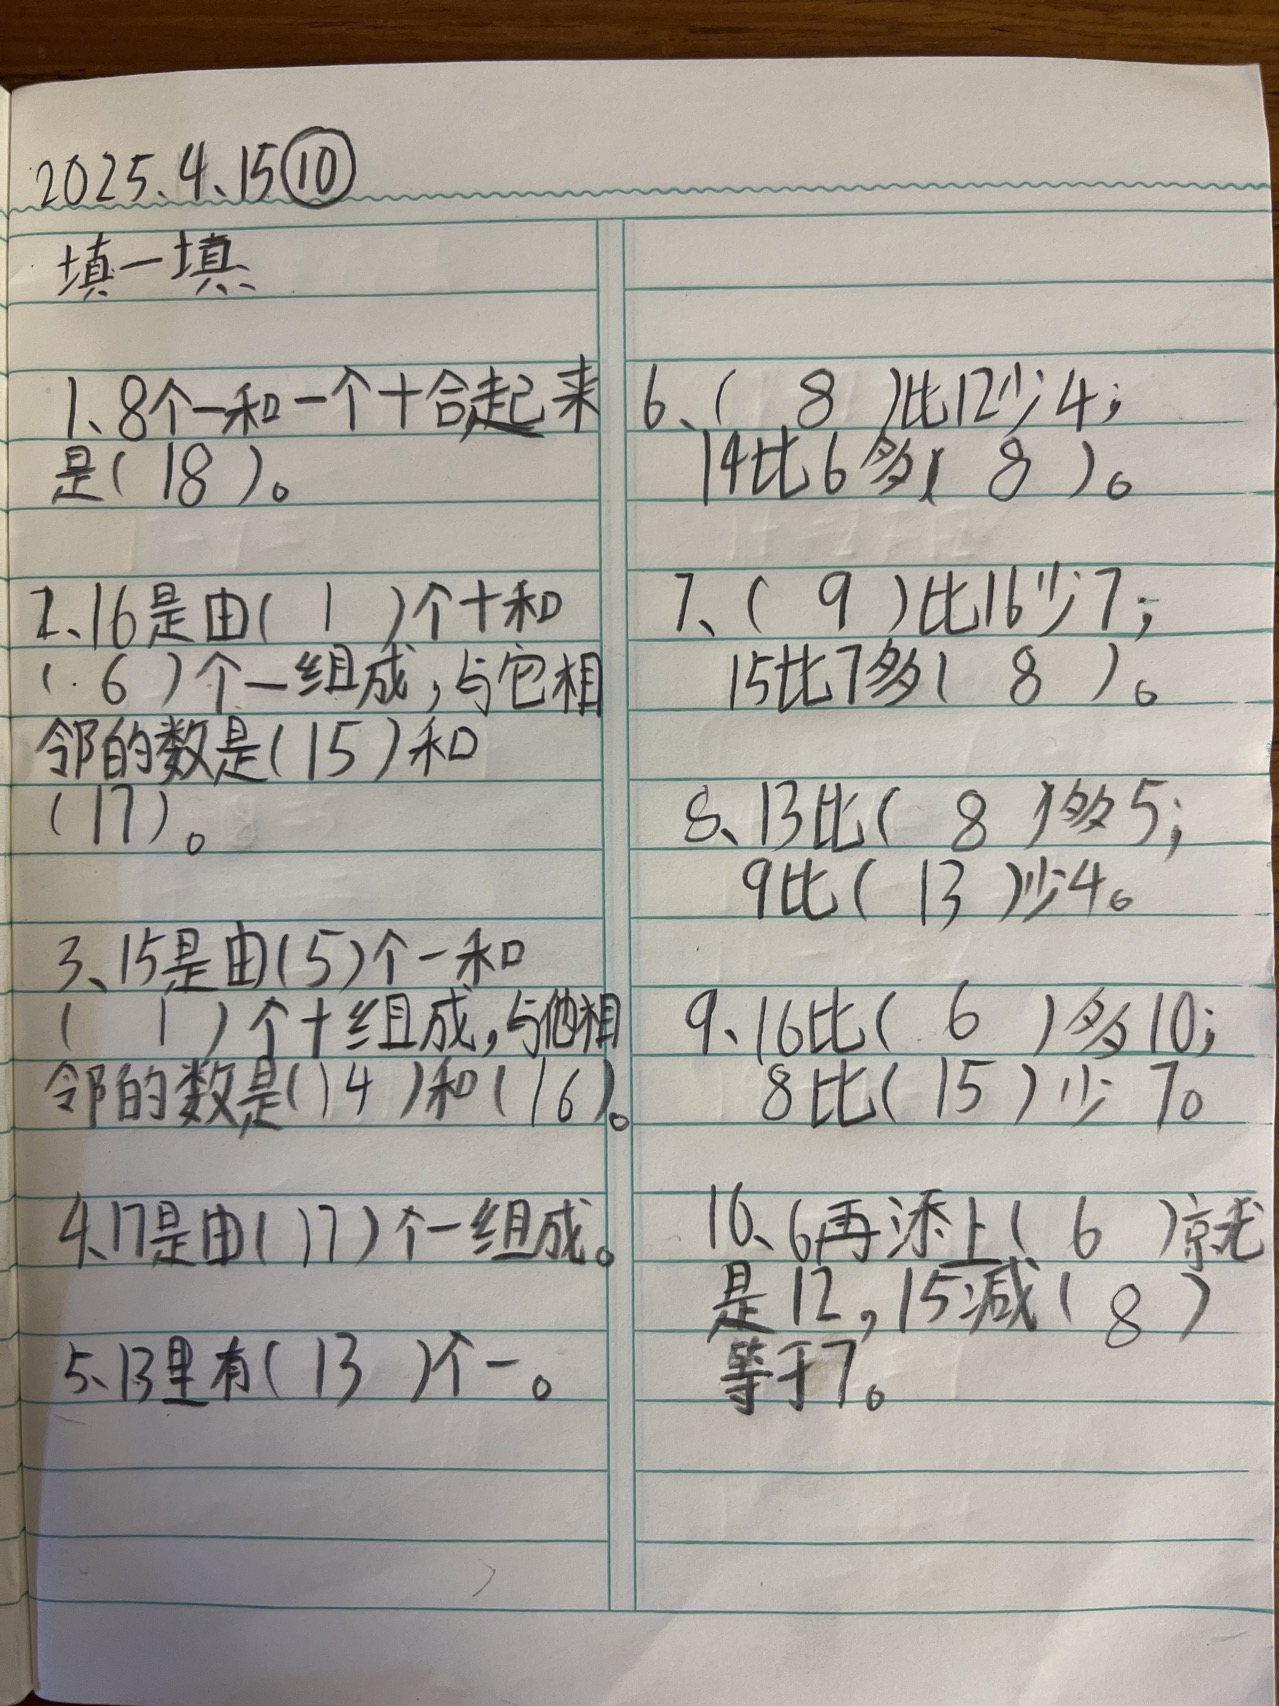 2025.4.15⑩
填一填
1、8个一和一个十合起来
是(18)。
2、16是由(1)个十和
(6)个一组成,与它相
邻的数是(15)和
(17)。
3、15是由(5)个一和
(1)个十组成,与他相
邻的数是(14)和(16)。
4、17是由(17)个一组成。
5、13里有(13)个一。
6、(8)比12少4;
14比6多(8)。
7、(9)比16少7;
15比7多(8)。
8、13比(8)多5;
9比(13)少4。
9、16比(6)多10;
8比(15)少7。
10、6再添上(6)就
是12,15减(8)
等于7。